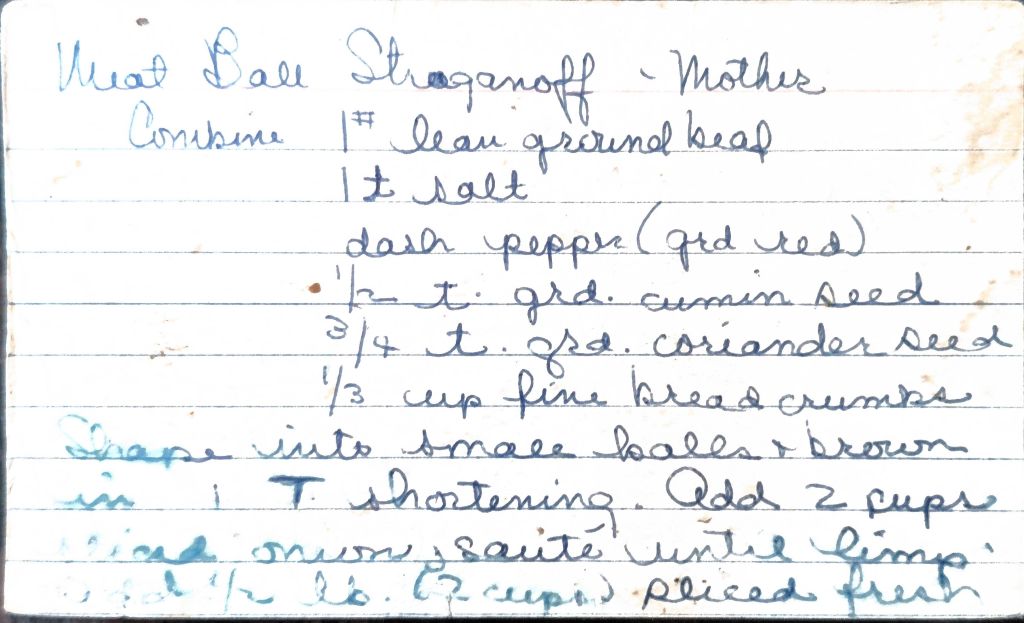 Meat Ball Stroganoff - Mother
Combine 1# lean ground beaf
1 t salt
dash pepper (grd red)
1/2 t. grd. cumin seed
3/4 t. grd. coriander seed
1/3 cup fine bread crumbs
Shape into small balls & brown
in 1 T. shortening. Add 2 cups
sliced onion, sauté until limp.
add 1/2 lb. (2 cups) sliced fresh